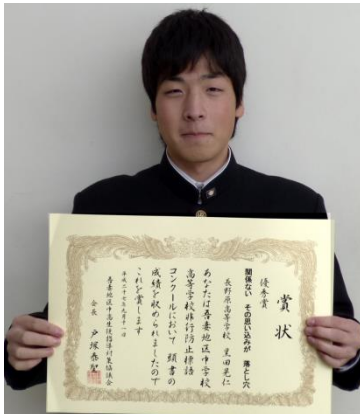 賞状
優秀賞
関係ない その思い込みが 落とし穴
長野原高等学校 黒田晃仁
あなたは吾妻地区中学校
高等学校非行防止標語
コンクールにおいて 頭書の
成績を収められましたので
これを賞します
平成二十七年九月十一日
吾妻地区中高生徒指導対策協議会
会長 戸塚泰聖